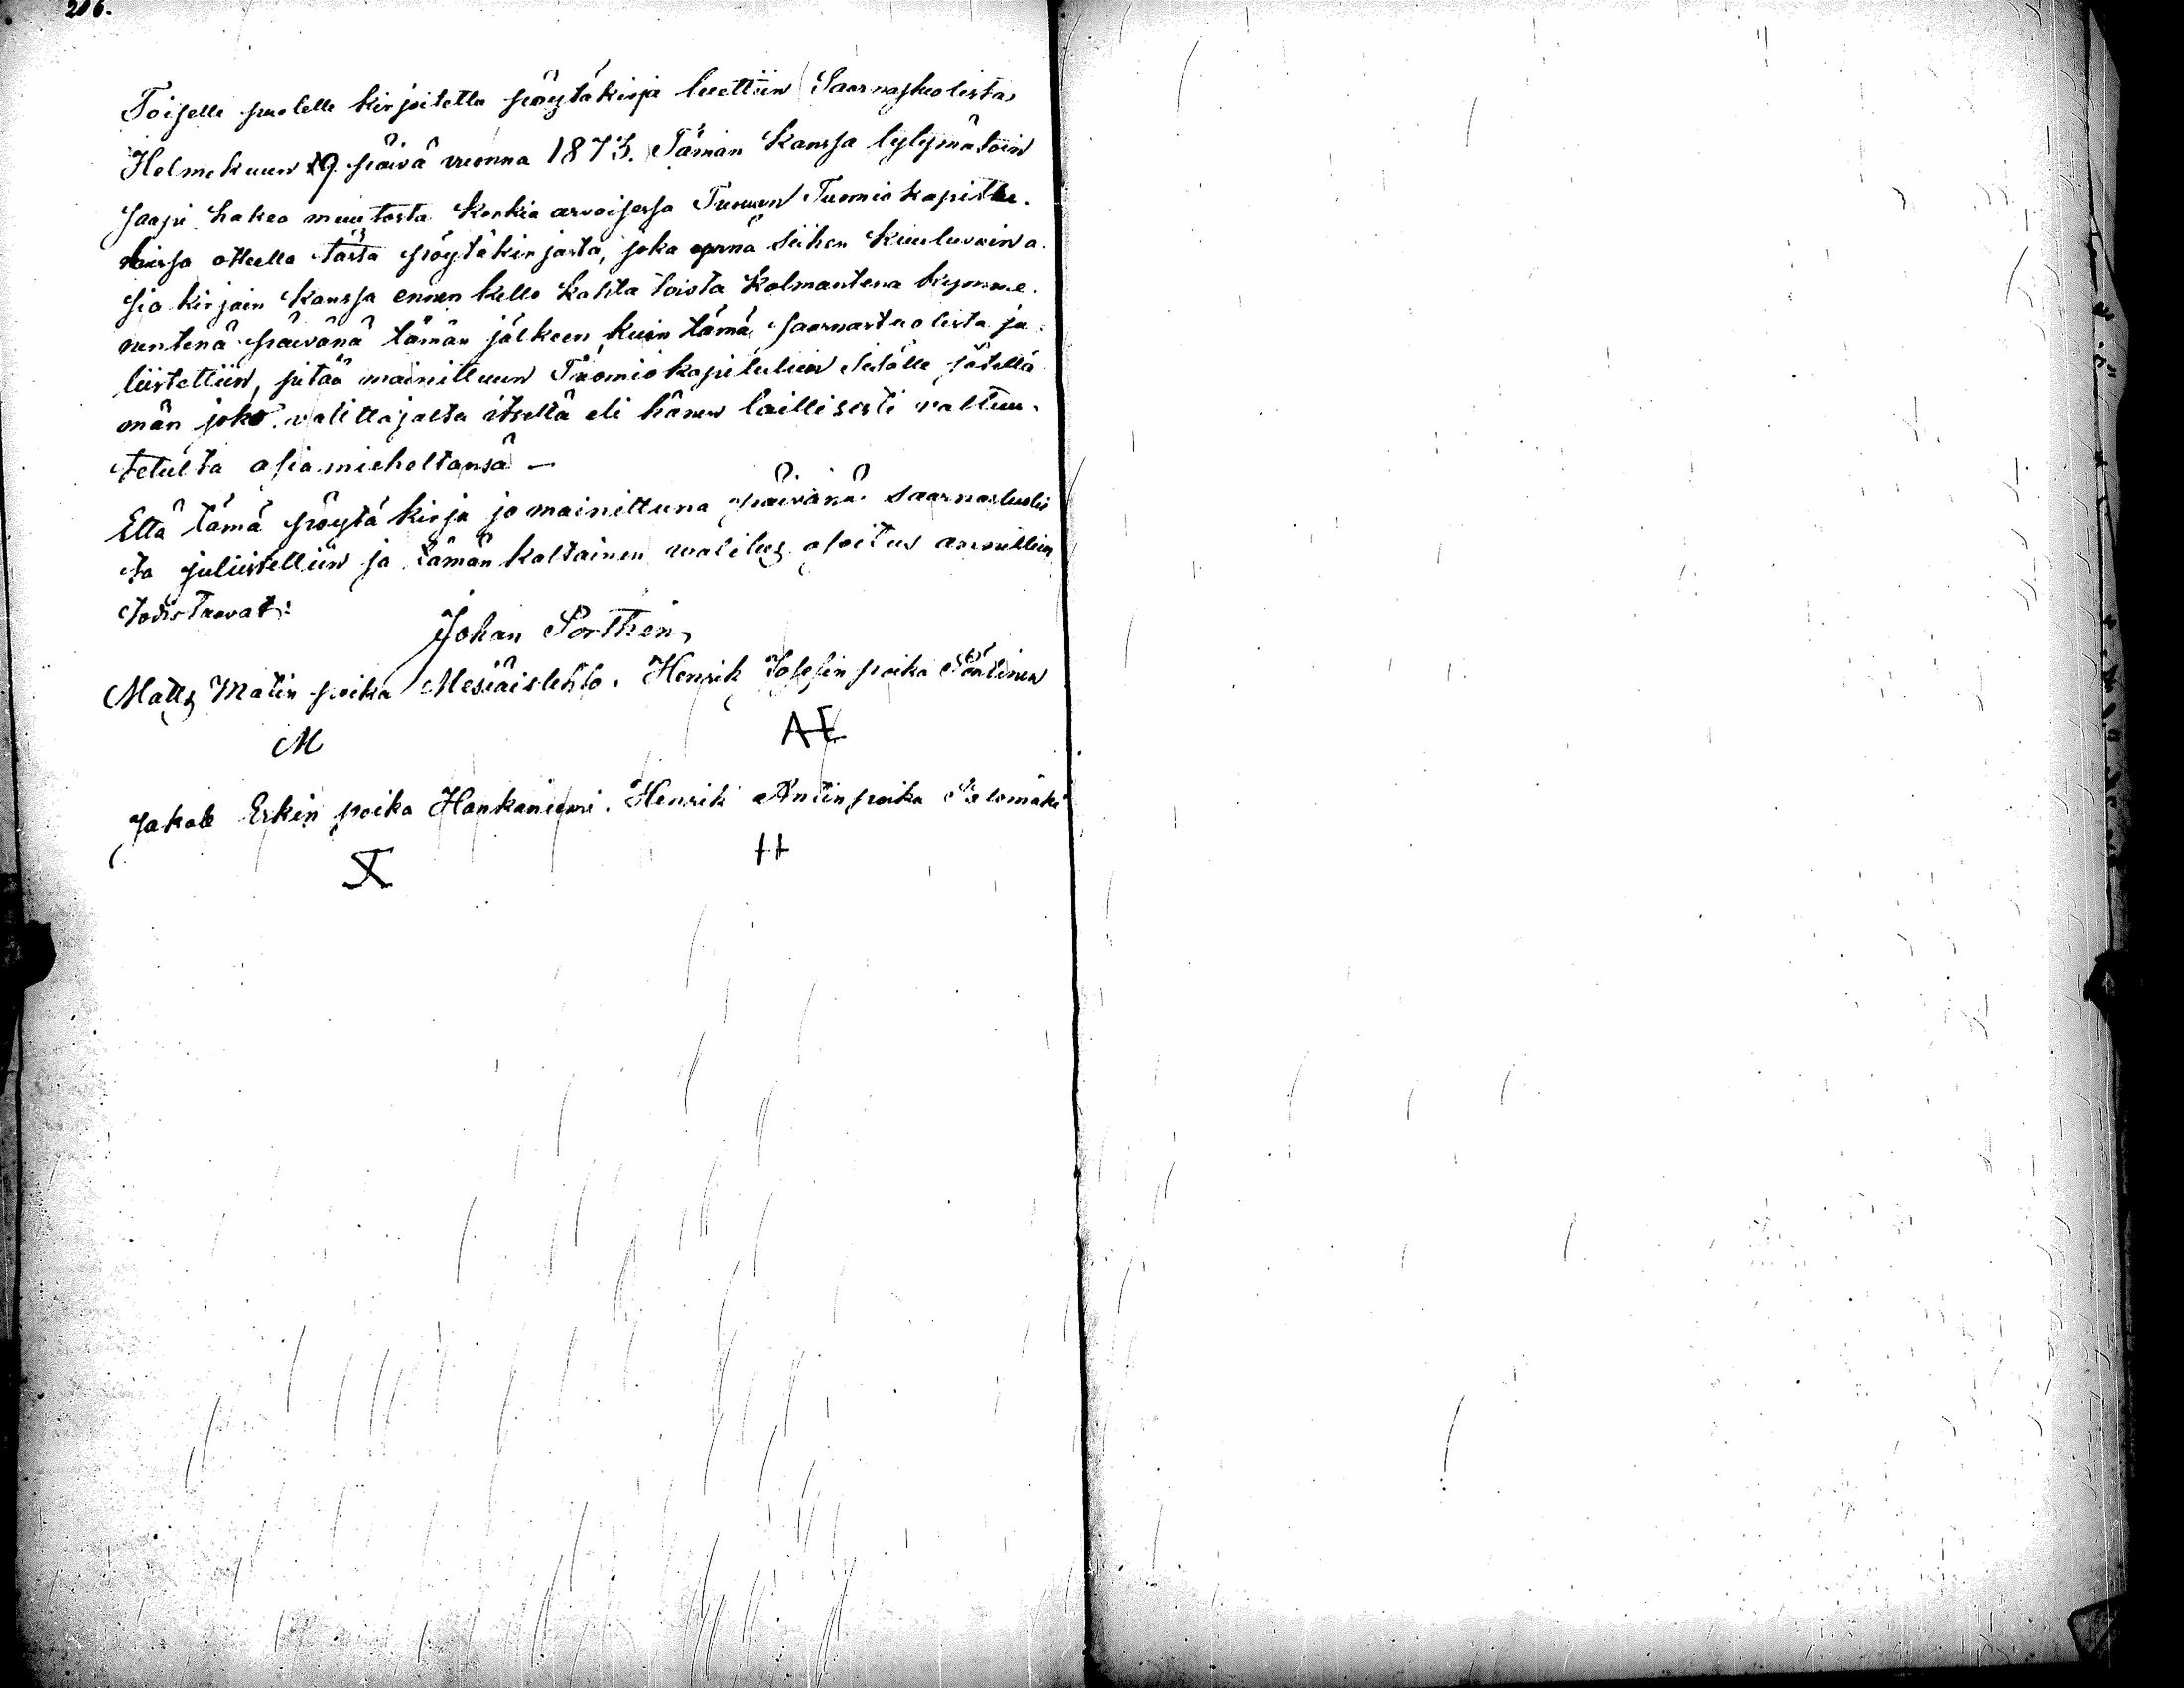 206.
Toiselle puolelle kirjoitettu pöytäkirja luettiin Saarnastuolista
Helmekuun 19 päivä vuonna 1873. Tämän kanssa tytymätöin
saapi hakea muutosta korkia arvoisessa Turuun Tuomiokapitu-
otteella tästä pöytäkirjasta, joka ynnä siihen kuuluvain a-
sia kirjain kanssa ennen kello kahta toista kolmantena kymme-
nentenä päivänä tämän jälkeen, kuin tämä saarnastuolista ju-
liistettiin, pitää mainittuun Tuomiokapituliin sisälle jätettä-
män joko valittajalta itseltä eli hänen laillisesti valtuu-
tetulta asiamieheltansä —
Että tämä pöytäkirja jo mainittuna päivänä saarnastuolis
ta juliistettiin ja tämän kaltainen valitus osoitus annettiin
todistaavat:
Johan Porthén,
Matts Matin poika Mesiäislehto. Henrik Josefin poika
M AE
Jakob Erkin poika Hankaniemi. Henrik Antin poika Salomäki
X H